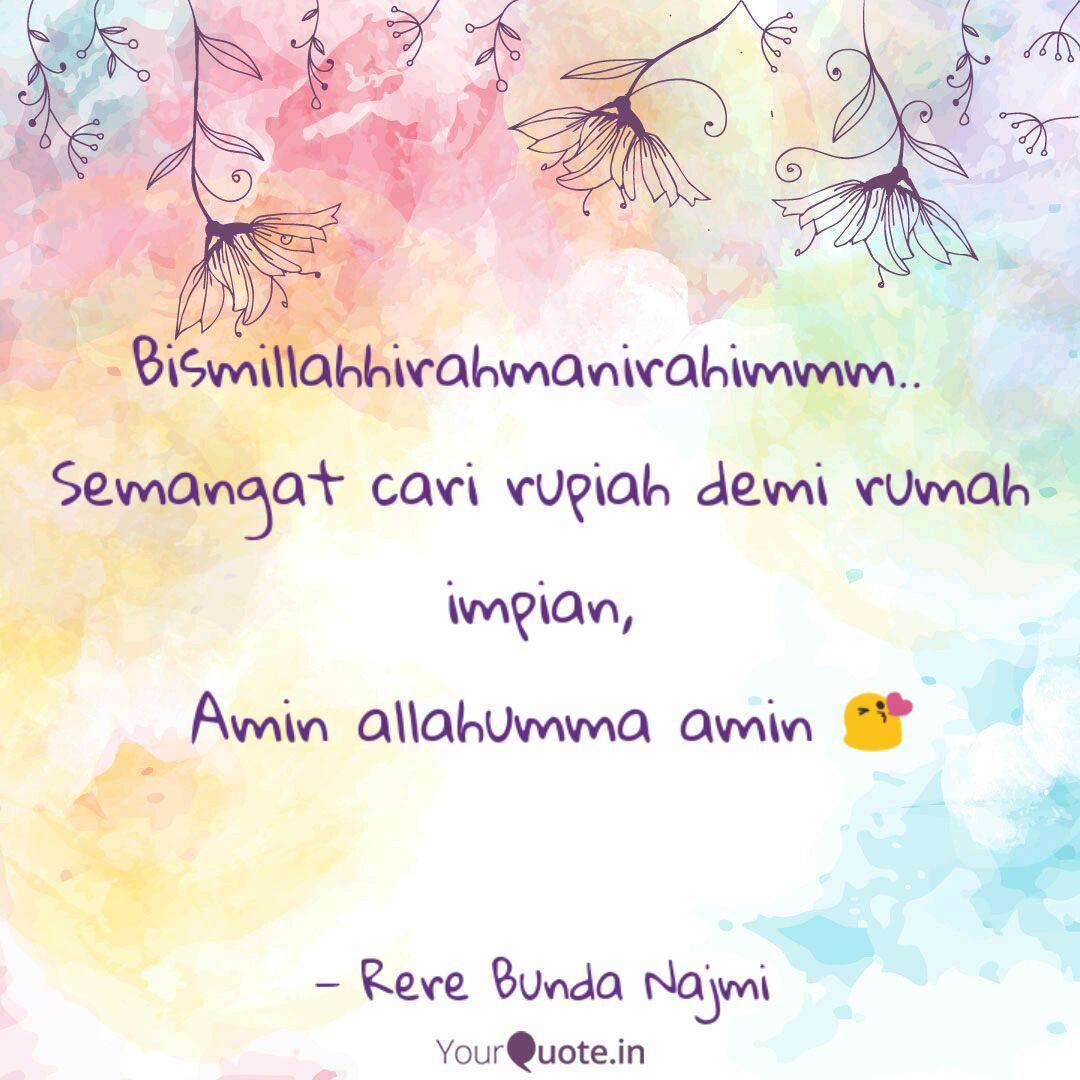 Bismillahhirahmanirahimmm..
Semangat cari rupiah demi rumah
impian,
Amin allahumma amin 😘
- Rere Bunda Najmi
YourQuote.in